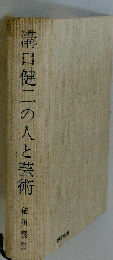 溝口健二の人と芸術
依田義賢